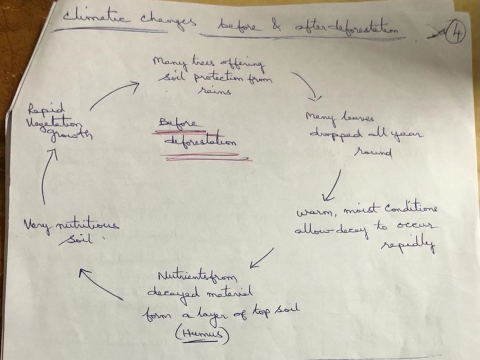 climatic changes before & after deforestation
4
Many trees offering
soil protection from
rains
Many leaves
dropped all year
round
warm, moist conditions
allow decay to occur
rapidly
Nutrients from
decayed material
form a layer of top soil
(Humus)
Very nutritious
soil.
Rapid
Vegetation
growth
Before
deforestation